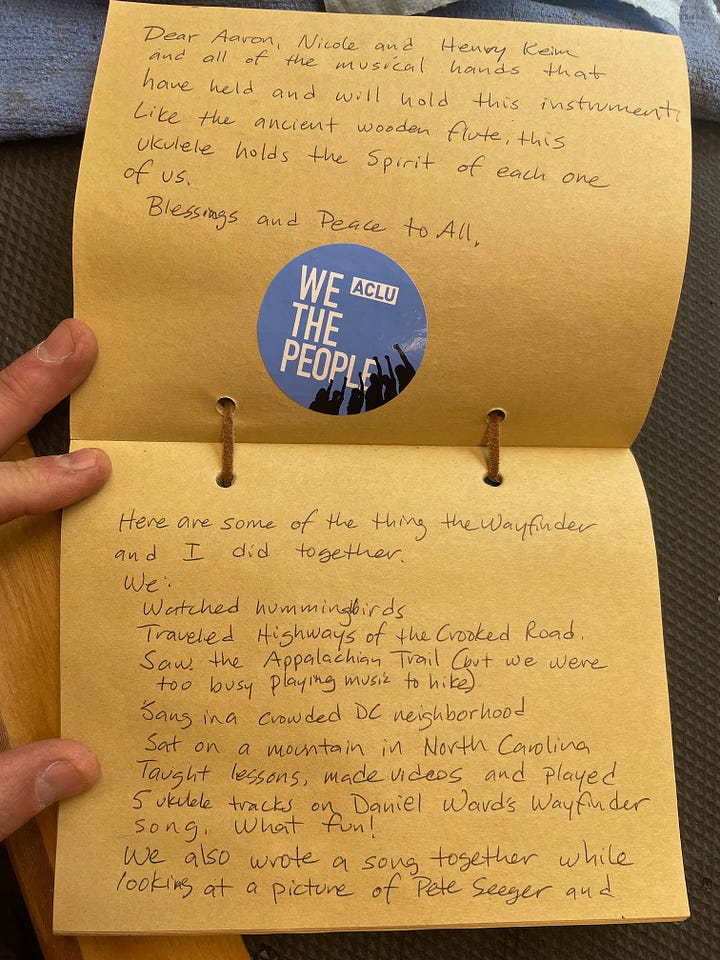 Dear Aaron, Nicole and Henry Keim
and all of the musical hands that
have held and will hold this instrument.
Like the ancient wooden flute, this
ukulele holds the Spirit of each one
of us.
Blessings and Peace to All,
WE ACLU
THE
PEOPLE
Here are some of the thing the Wayfinder
and I did together.
We:
Watched hummingbirds
Traveled Highways of the Crooked Road.
Saw the Appalachian Trail (but we were
too busy playing music to hike)
Sang in a crowded DC neighborhood
Sat on a mountain in North Carolina
Taught lessons, made videos and played
5 ukulele tracks on Daniel Ward's Wayfinder
song. What fun!
We also wrote a song together while
looking at a picture of Pete Seeger and